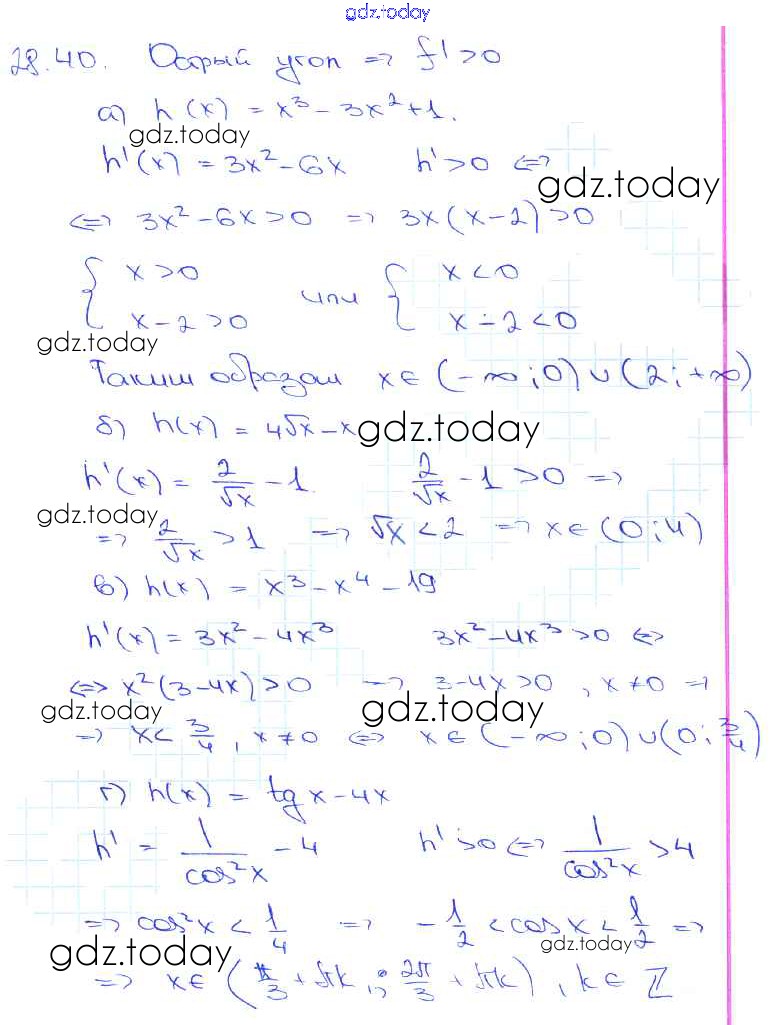 gdz.today
28.40. Острый угол => f' > 0
а) h(x) = x³ - 3x² + 1.
gdz.today
h'(x) = 3x² - 6x h' > 0 <=>
gdz.today
<=> 3x² - 6x > 0 => 3x(x-2) > 0
{ x > 0 или { x < 0
x - 2 > 0 x - 2 < 0
gdz.today
Таким образом x ∈ (-∞; 0) ∪ (2; +∞)
б) h(x) = 4√x - x
gdz.today
h'(x) = 2/√x - 1. 2/√x - 1 > 0 =>
gdz.today
=> 2/√x > 1 => √x < 2 => x ∈ (0; 4)
в) h(x) = x³ - x⁴ - 19
h'(x) = 3x² - 4x³ 3x² - 4x³ > 0 <=>
<=> x²(3-4x) > 0 => 3-4x > 0, x ≠ 0 =>
gdz.today gdz.today
=> x < 3/4, x ≠ 0 <=> x ∈ (-∞; 0) ∪ (0; 3/4)
г) h(x) = tg x - 4x
h' = 1/cos²x - 4 h' > 0 <=> 1/cos²x > 4
=> cos²x < 1/4 => -1/2 < cos x < 1/2 =>
gdz.today gdz.today
=> x ∈ (π/3 + πk; 2π/3 + πk), k ∈ ℤ